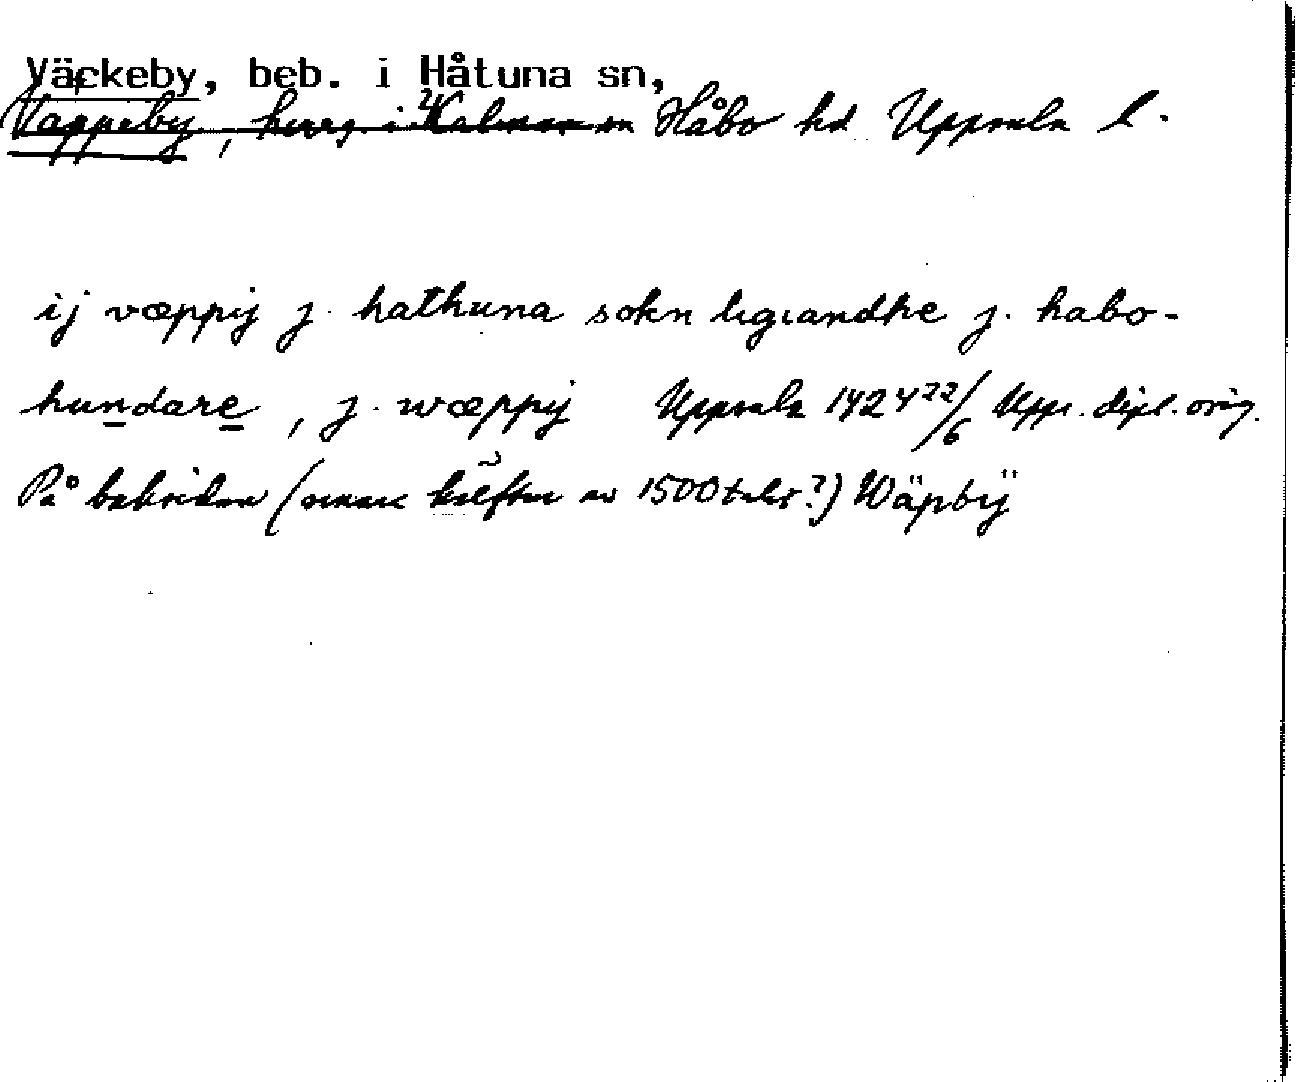 Väckeby, beb. i Håtuna sn,
Vappeby, herrg i Kalmar sn Håbo hd Uppsala l.
ij væppij j. hathuna sokn ligiandhe j. habo-
hundare, j. wæppij Uppsala 1424 22/6 Upps. dipl. orig.
På baksidan (senare hälften av 1500 talet?) Wäpbÿ